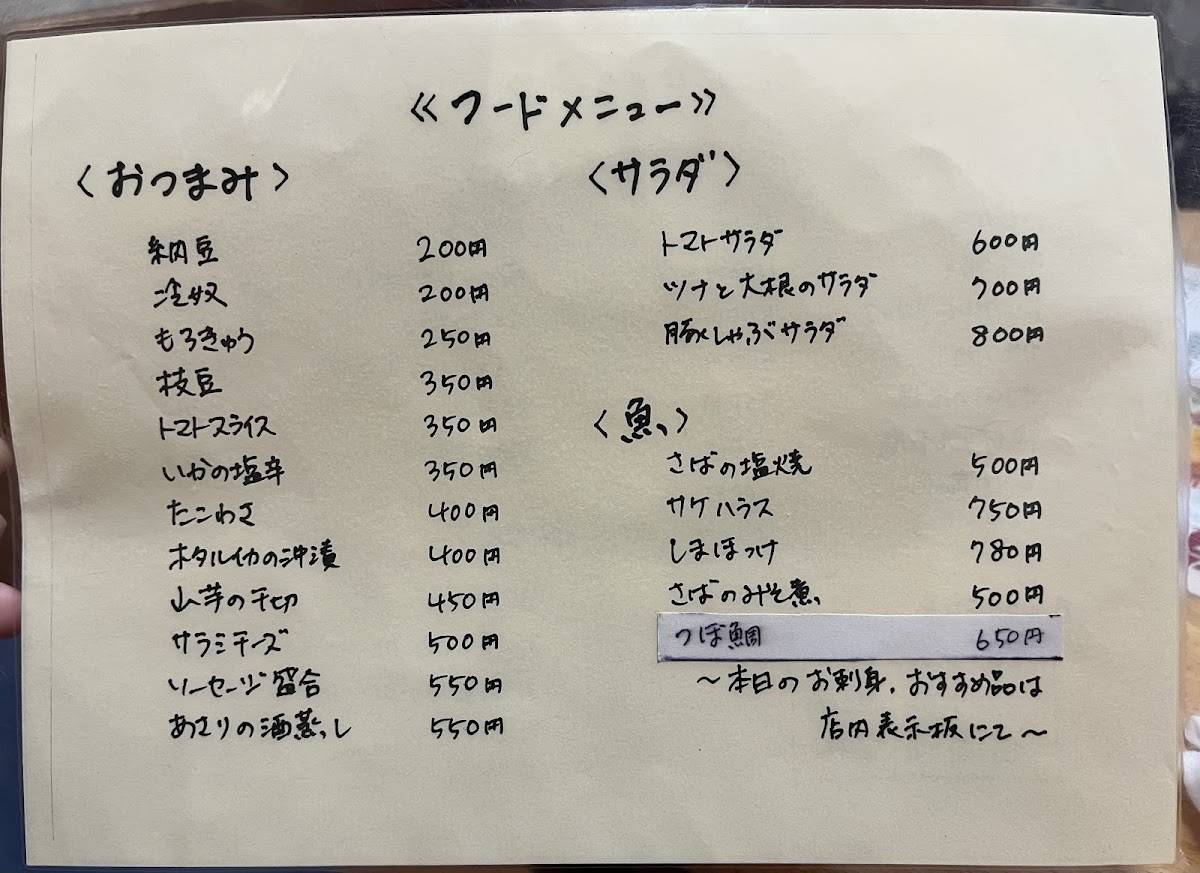 ≪フードメニュー≫
〈おつまみ〉
納豆 200円
冷奴 200円
もろきゅう 250円
枝豆 350円
トマトスライス 350円
いかの塩辛 350円
たこわさ 400円
ホタルイカの沖漬 400円
山芋の千切 450円
サラミチーズ 500円
ソーセージ盛合 550円
あさりの酒蒸し 550円
〈サラダ〉
トマトサラダ 600円
ツナと大根のサラダ 700円
豚しゃぶサラダ 800円
〈魚〉
さばの塩焼 500円
サケハラス 750円
しまほっけ 780円
さばのみそ煮 500円
つぼ鯛 650円
～本日のお刺身、おすすめ品は
店内表示板にて～